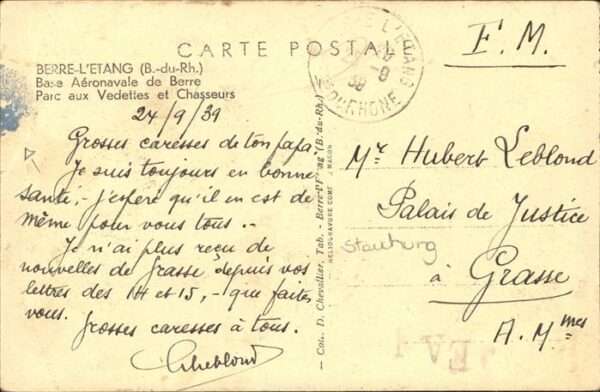 CARTE POSTALE
F. M.
BERRE-L'ETANG (B.-du-Rh.)
Base Aéronavale de Berre
Parc aux Vedettes et Chasseurs
24/9/39
Grosses caresses de ton papa
Je suis toujours en bonne
santé, - j'espère qu'il en est de
même pour vous tous. -
Je n'ai plus reçu de
nouvelles de Grasse depuis vos
lettres des 14 et 15, - que faites
vous.
Grosses caresses à tous.
Leblond
Coll. D. Chevallier, Tab. - Berre-l'Etang (B.-du-Rh.)
HELIOGRAVURE
L'ETANG
Mr Hubert Leblond
Palais de Justice
à Grasse
A. Mmes